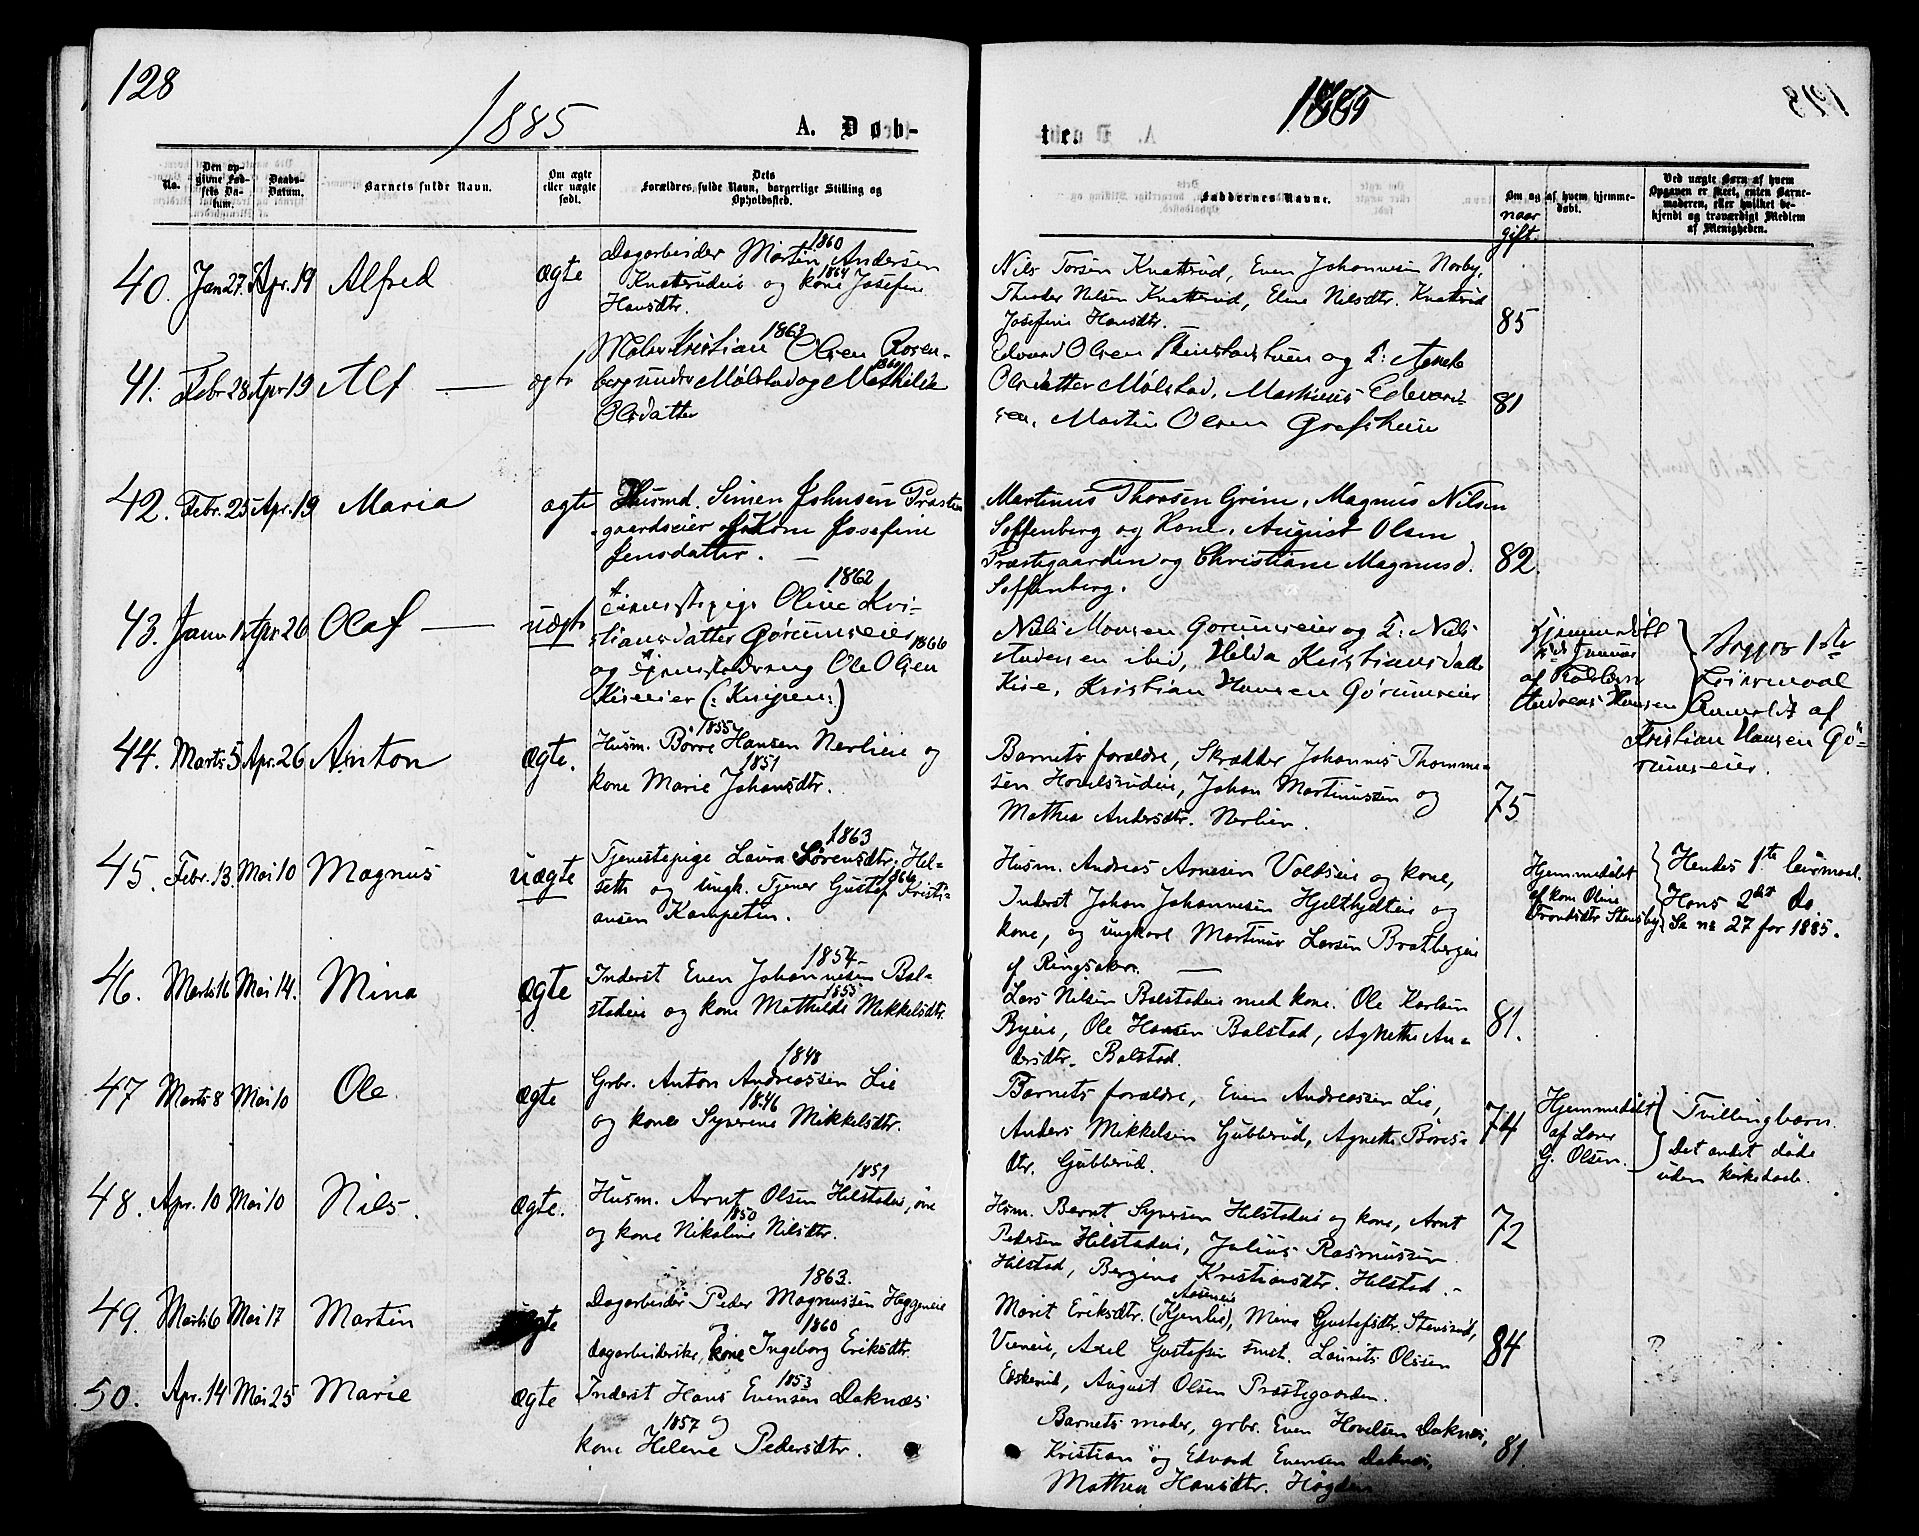 128
1885
A. Døb-
No.
Den op-
givne Fød-
sels Da-
tum.
Daabs-
Datum.
Barnets fulde Navn.
Om ægte
eller uægte
født.
Dets
Forældres fulde Navn, borgerlige Stilling og
Opholdssted.
40. Jan 27. Apr. 19 Alfred ægte
Dagarbeider Martin 1860 Andersen
Knatterudeie og kone 1864 Josefine
Hansdtr.
41. Febr 28 Apr 19 Alf — ægte
Kristian 1863 Olsen Rosen-
berg under Mølstad og Mathilde
Olsdatter
42. Febr. 25 Apr. 19 Maria ægte
Husmd. Simen Johnsen Præste-
gaardseier og Kone Josefine
Jensdatter. —
43. Janu 1 Apr 26 Olaf — uægte
Tjenestepige Oline 1862 Kri-
stiansdatter Gørumseier
og Tjenestedreng Ole Olsen 1866
Kiseeier (: Knipen:)
44. Marts 5 Apr. 26 Anton ægte.
Husm. Børre 1855 Hansen Nerlieie og
kone Marie 1851 Johansdtr.
45. Febr. 13. Mai 10 Magnus uægte
Tjenestepige Laura 1863 Sørensdtr. Hel-
seth og ungk. Tjener Gustaf Kristi-
ansen Kampetin.
46. Marts 16 Mai 14. Mina ægte
Inderst Even Johannesen 1854 Bal-
stadeie og kone Mathilde 1855 Mikkelsdtr.
47 Marts 8 Mai 10 Ole. ægte
Grbr. Anton Andreassen 1848 Lie
og kone Syverine 1846 Mikkelsdtr.
48. Apr. 10 Mai 10 Nils. ægte.
Husm. Arnt Olsen 1851 Helstadeie,
og kone Nikoline 1850 Nilsdtr.
49. Marts 6 Mai 17 Martin ægte
Dagarbeider Peder Magnussen 1863. Heggeneie
og
dagarbeiderske, kone Ingeborg 1860 Eriksdtr.
50. Apr. 14 Mai 25 Marie ægte
Inderst Hans Evensen 1853 Doknæs
og
kone Helene 1857 Pedersdtr.
1885
ten
Faddernes Navne.
Om og af hvem hjemme-
døbt.
naar
gift.
Ved uægte Børn af hvem
Opgaven er skeet, enten Barne-
moderen, eller hvilket be-
kjendt og troværdigt Medlem
af Menigheden.
Nils Torsen Knatterud, Even Johannesen Norby,
Theodor Nilsen Knatterud, Eline Nilsdtr. Knatterud
Josefine Hansdtr. 85
Edvard Olsen og P: Agnete
Olsdatter Mølstad, Matheus Edvard-
sen, Martin Olsen Grefsheim 81
Martinus Thorsen Grime, Magnus Nilsen
Soffenberg og Kone, August Olsen
Præstegaarden og Christiane Magnusd.
Soffenberg. 82.
Niels Monsen Gørumseier og P: Niels
Andersen ibid, Hilda Kristiansdatt
Kise, Kristian Hansen Gørumseier
Hjemmedøbt
Januar
af
Andreas Hansen
Begges 1ste
Leiermaal
Anmeldt af
Kristian Hansen Gø-
rumseier.
Barnets forældre, Skrædder Johannes Thomme-
sen Hovelsrudeie, Johan Martinussen og
Mathea Andersdtr. Nerlien. 75
Husm. Andreas Arnesen Voldseie og kone,
Inderst Johan Johannesen Hjelthytteie og
kone, og ungkarl Martinus Larsen Bratbergeie
af Ringsaker. —
Hjemmedøbt
af kone Oline
Trondsdtr Stensby.
Hendes 1te leiermaal.
Hans 2det Do
Se no 27 for 1885.
Lars Nilsen Balstadeie med kone. Ole Karlsen
Byeie, Ole Hansen Balstad, Agnethe An-
dersdtr. Balstad. 81.
Barnets forældre, Even Andreassen Lie,
Anders Mikkelsen Gubberud, Agnethe Børres-
dtr. Gubberud. 74
Hjemmedøbt
af Lærer
G. Olsen.
Tvillingbarn.
Det andet døde
uden kirkedaab.
Husm. Bernt Syversen Helstadeie og kone, Arnt
Pedersen Helstadeie, Julius Rasmussen
Helstad, Bergine Kristiansdtr. Helstad. - 72
Marit Eriksdtr. (Kjenlie), Mina Gustafsdtr. Stensrud,
Vieneie, Axel Gustafsen Laurits Olsen
August Olsen Præstegaarden. 84
Barnets moder, grbr. Even Hovelsen Doknæs,
Kristian og Edvard Evensen Doknæs,
Mathea Hansdtr. Høgden 81.